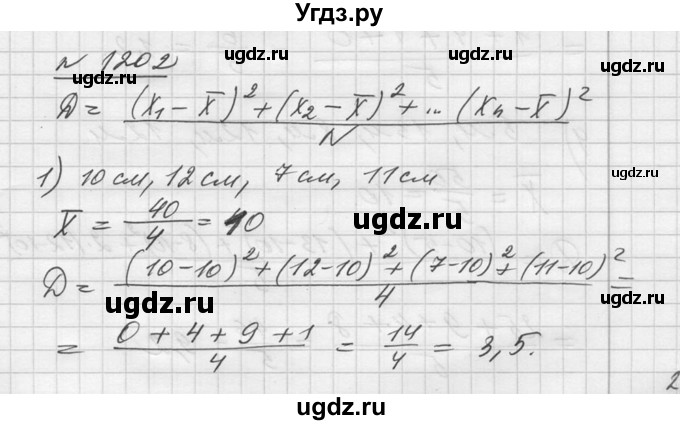 Угдз.ру
№ 1202
D = (x₁ − x̄)² + (x₂ − x̄)² + ... (xₙ − x̄)² / N
1) 10 см, 12 см, 7 см, 11 см
x̄ = 40/4 = 10
D = (10−10)² + (12−10)² + (7−10)² + (11−10)² / 4 =
= 0 + 4 + 9 + 1 / 4 = 14/4 = 3,5.
2
ugdz.ru
ugdz.ru
ugdz.ru
ugdz.ru
ugdz.ru
ugdz.ru
ugdz.ru
ugdz.ru
ugdz.ru
ugdz.ru